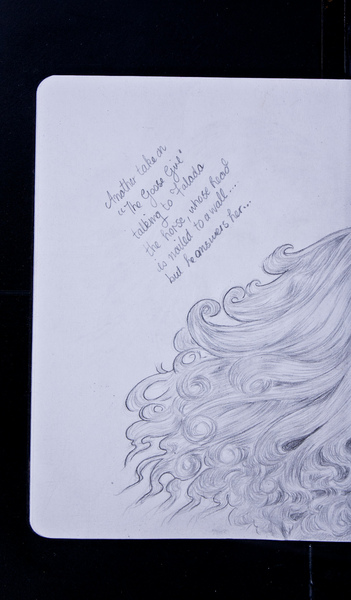 Another take on
"The Goose Girl"
talking to Falada
the horse, whose head
is nailed to a wall...
but he answers her...